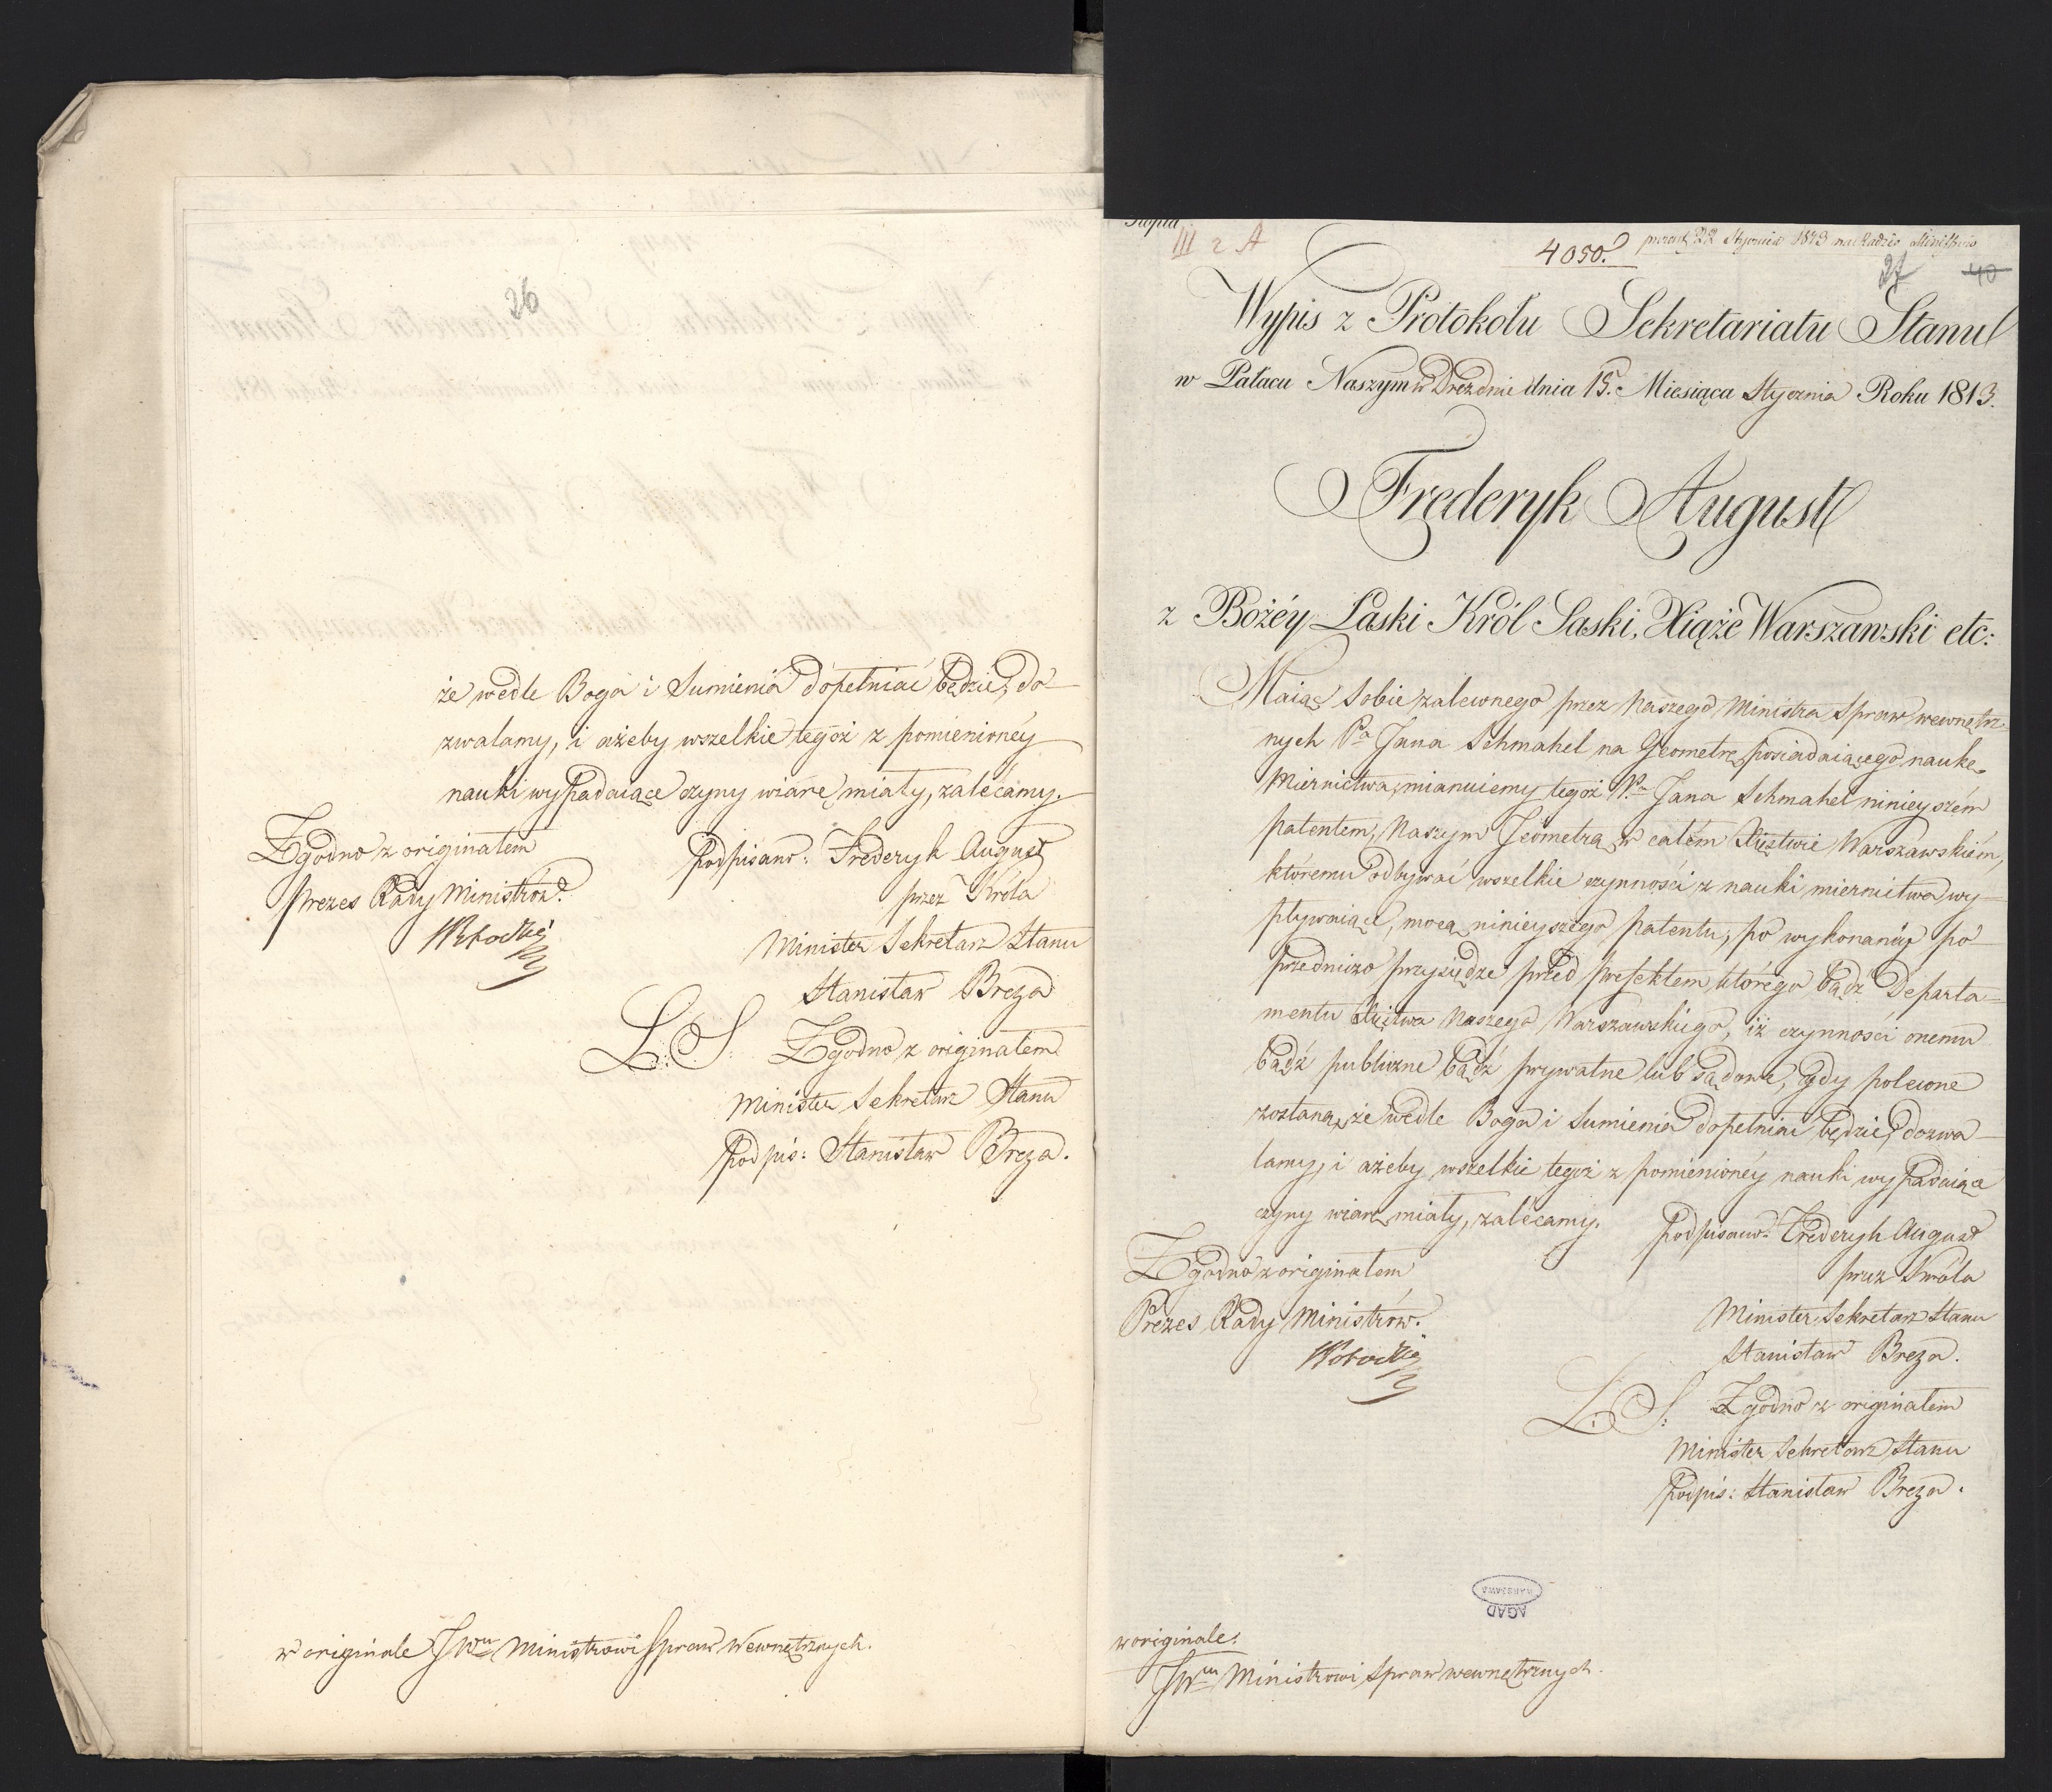 26
że wedle Boga i Sumienia dopełniać będzie, do-
zwalamy, i ażeby wszelkie tegoż z pomienionéy
nauki wypadaiące czyny wiarę miały, zalécamy.
Zgodno z originałem
Prezes Rady Ministrów.
podpisano: Frederyk August
przez Króla
Minister Sekretarz Stanu
Stanisław Breza
L: S: Zgodno z originałem
Minister Sekretarz Stanu
podpis: Stanisław Breza.
w originale JWmu Ministrowi Spraw Wewnętrznych.
Kopia
III 2 A
4050. 22 Stycznia 1813 na Radzie Ministrów
27 40
Wypis z Protokołu Sekretariatu Stanu
w Pałacu Naszym w Dreznie dnia 15. Miesiąca Stycznia Roku 1813.
Frederyk August
z Bożéy Łaski Król Saski, Xiąże Warszawski etc:
Maiąc Sobie zaleconego przez Naszego Ministra Spraw wewnętrz-
nych Pa Jana Schmahel na Geometrę, posiadaiącego naukę
Miernictwa, mianuiemy tegoż Pa Jana Schmahel ninieyszém
patentem, Naszym Jeometrą w całém Xięstwie Warszawskiém,
któremu odbywać wszelkie czynności z nauki miernictwa wy-
pływaiące, mocą ninieyszego patentu, po wykonanéy po-
przedniczo przysiędze przed prefektem, którego bądź Departa-
mentu Xięstwa Naszego Warszawskiego, iż czynności onemu
bądź publiczne bądź prywatne lub sądowe, gdy polecone
zostaną, że wedle Boga i Sumienia dopełniać będzie, dozwa-
lamy, i ażeby wszelkie tegoż z pomienionéy nauki wypadaiące
czyny wiarę miały, zalécamy.
podpisano: Frederyk August
przez Króla
Zgodno z originałem
Prezes Rady Ministrów.
Minister Sekretarz Stanu
Stanisław Breza.
L: S: Zgodno z originałem
Minister Sekretarz Stanu
podpis: Stanisław Breza.
AGAD
WARSZAWA
w originale.
JWmu Ministrowi Spraw wewnętrznych.